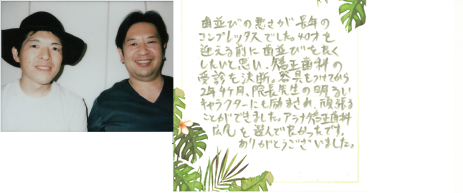 歯並びの悪さが長年の
コンプレックスでした。40才を
迎える前に歯並びを良く
したいと思い、矯正歯科の
受診を決断。器具をつけてから
2年4ケ月、院長先生の明るい
キャラクターにも励まされ、頑張る
ことができました。アラナ矯正歯科
を選んで良かったです。
ありがとうございました。